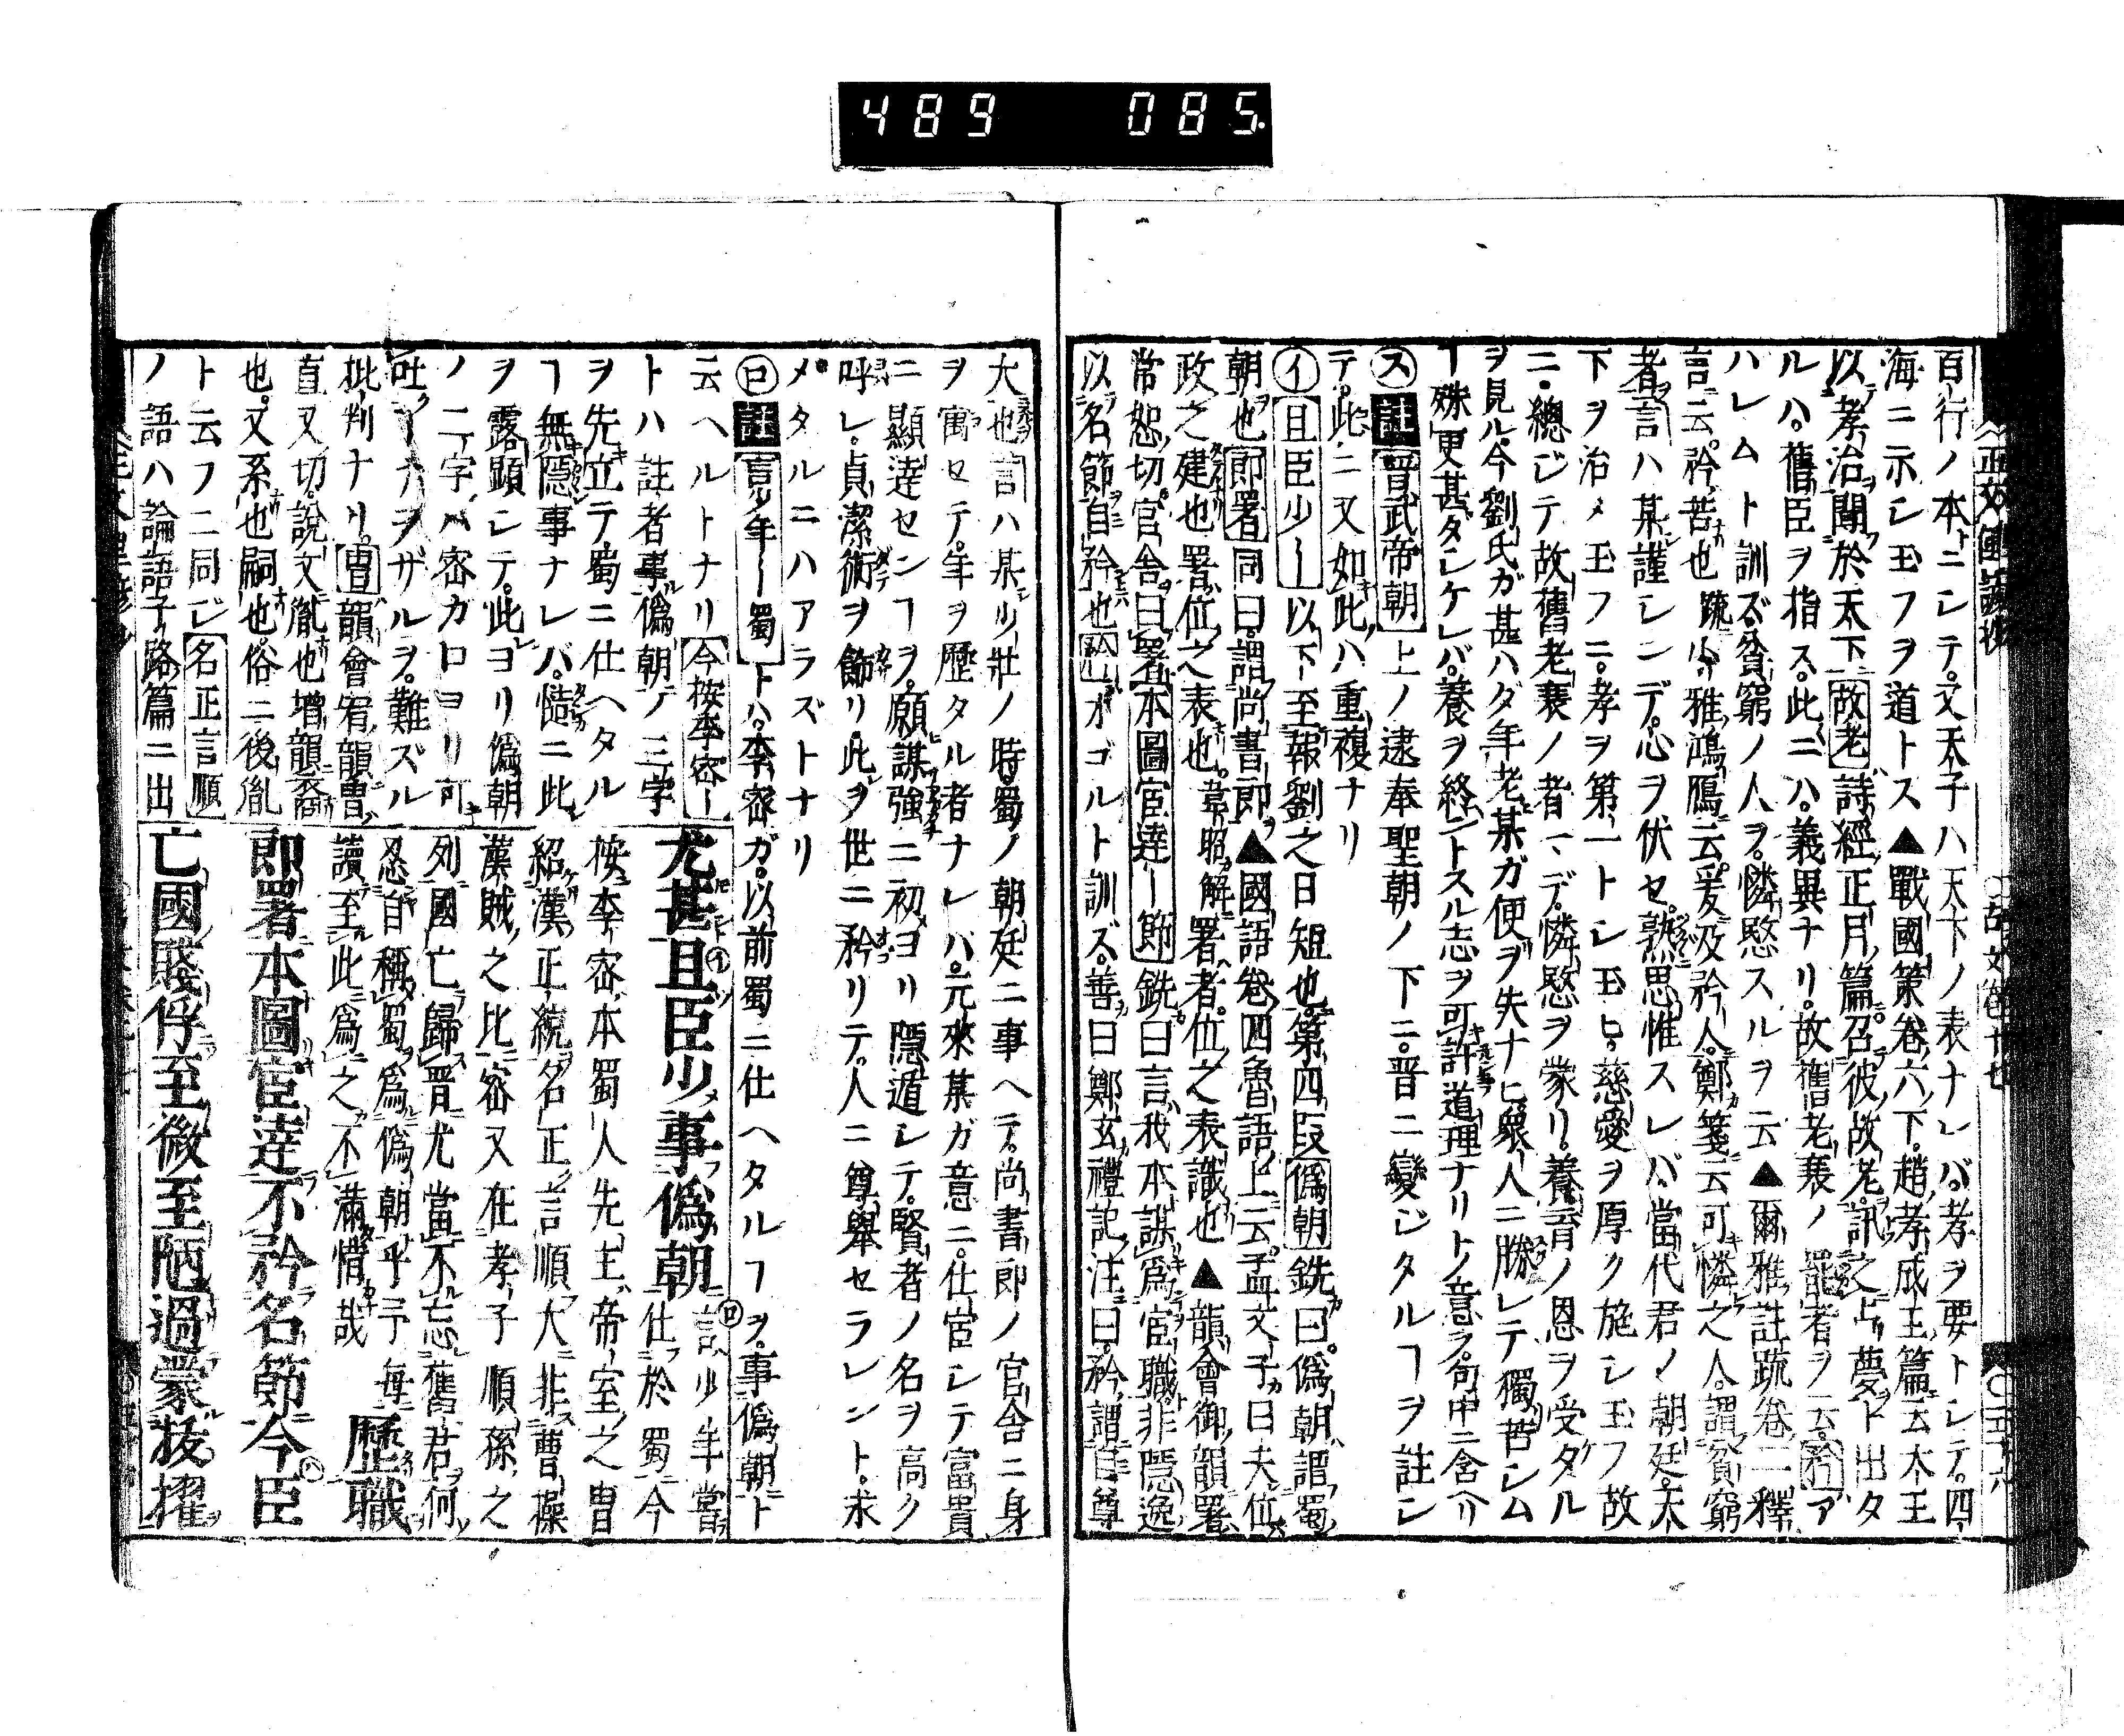 489 085
百行ノ本ニシテ。又天子ハ天下ノ表ナレバ。孝ヲ要トシテ。四
海ニ示シ玉フヲ道トス▲戰國策卷六下。趙孝成王篇云大王
以孝治聞於天下 故老 詩經正月篇。召彼故老。訊之占夢ト出タ
ルハ。舊臣ヲ指ス。此ニハ。義異ナリ。故舊老衰ノ 罷者ヲ云。矜ア
ハレムト訓ズ。貧窮ノ人ヲ。憐愍スルヲ云▲爾雅註疏卷二釋
言云。矜苦也 疏 小雅鴻鴈云。爰及矜人。鄭箋云可憐之人。謂貧窮
者 言ハ某謹シンデ。心ヲ伏セ。熟思惟スレバ。當代君ノ朝廷。天
下ヲ治メ玉フニ。孝ヲ第一トシ玉ヒ。慈愛ヲ厚ク施シ玉フ故
ニ。總ジテ故舊老衰ノ者マデ。憐愍ヲ蒙リ。養育ノ恩ヲ受タル
ヲ見ル。今劉氏ガ甚ハダ年老某ガ便ヲ失ナヒ。衆人ニ勝レテ獨苦シム
ヿ殊更甚タシケレバ。養ヲ終ントスル志ヲ可許道理ナリトノ意ヲ。句中ニ含ヘリ
ス 註 晋武帝朝 上ノ逮奉聖朝ノ下ニ。晋ニ變ジタルヿヲ註シ
テ。此ニ又如此ハ重複ナリ
イ 且臣少ー 以下至報劉之日短也。第四段 僞朝 銑曰。僞朝謂蜀
朝也 郎署 同曰。謂尚書郎▲國語卷四魯語上云。孟文子曰夫位
政之建也署位之表也。韋昭解署者。位之表識也▲韻會御韻署
常恕切。官舎曰署 本圖宦達ー節 銑曰言我本謀爲宦職。非隱逸
以名節自矜也 矜 ホゴルト訓ズ。善曰鄭玄禮記注曰。矜謂自尊
大也 言ハ某少壯ノ時。蜀ノ朝廷ニ事ヘテ。尚書郎ノ官舎ニ身
ヲ寓セテ。年ヲ歴タル者ナレハ。元來某ガ意ニ。仕宦シテ富貴
ニ顯達センヿヲ。願謀強ニ初ヨリ隱遁シテ。賢者ノ名ヲ高ク
呼レ。貞潔術ヲ飾リ。此ヲ世ニ矜リテ。人ニ尊擧セラレント。求
メタルニハアラズトナリ
ロ 註 言少年ー蜀 トハ。李密ガ。以前蜀ニ仕ヘタルフヲ。事僞朝ト
云ヘルトナリ 今按李密ー
トハ註者事僞朝ノ三字
ヲ先立テ。蜀ニ仕ヘタル
ヿ無隱事ナレバ。慥ニ此
ヲ露顯シテ。此ヨリ僞朝
ノ二字ハ密ガ口ヨリ可
吐ーナヲザルヲ。難ズル
批判ナリ。冑 韻會宥韻冑
直又切。說文胤也增韻裔
也。又系也嗣也。俗ニ後胤
ト云フニ同ジ 名正言順
ノ語ハ論語子路篇ニ出
尤甚且臣少事僞朝 言少年嘗
仕於蜀今
按李密本蜀人先主帝室之冑
紹漢正統名正言順大非曹操
漢賊之比密又在孝子順孫之
列國亡歸晋尤當不忘舊君何
忍自稱蜀爲僞朝乎予每
讀至此爲之不滿惜哉 歷職
郎署本圖宦達不矜名節今臣
亡國賤俘至微至陋過蒙拔擢